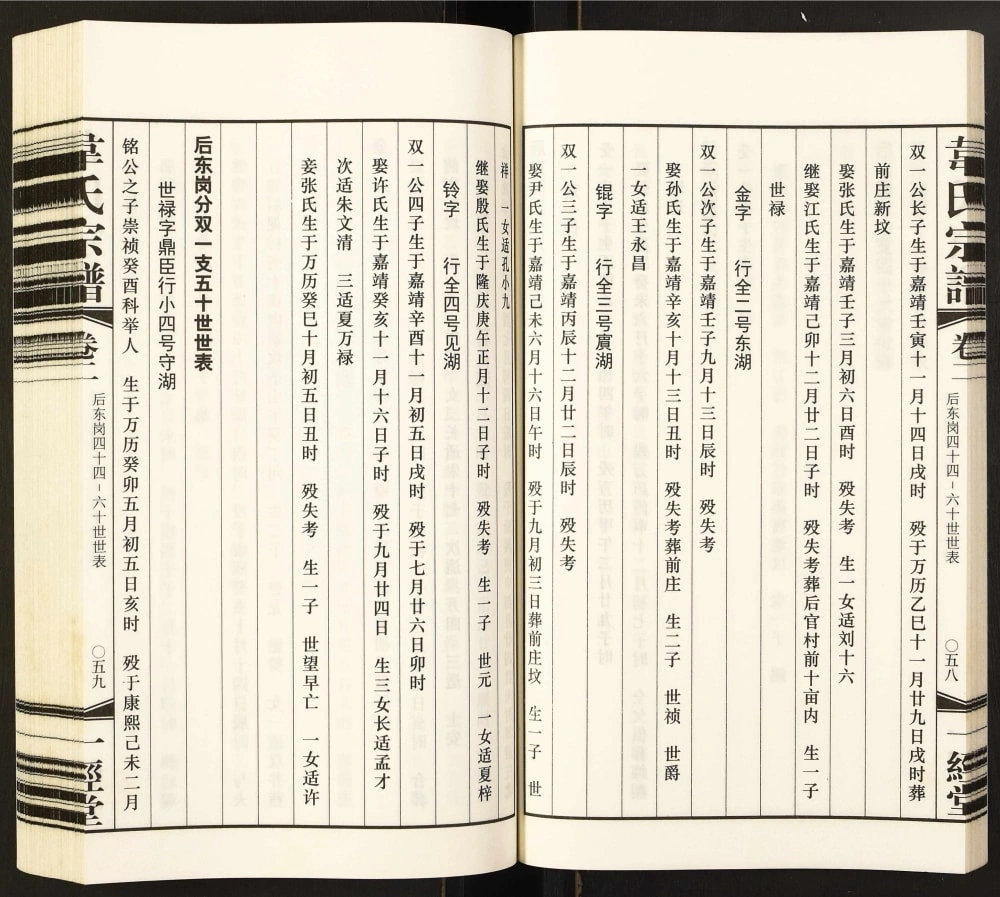 韋氏宗譜
卷二
后东岗四十四-六十世世表
〇五八
一經堂
双一公长子生于嘉靖壬寅十一月十四日戌时 殁于万历乙巳十一月廿九日戌时葬
前庄新坟
娶张氏生于嘉靖壬子三月初六日酉时 殁失考 生一女适刘十六
继娶江氏生于嘉靖己卯十二月廿二日子时 殁失考葬后官村前十亩内 生一子
世禄
金字 行全二号东湖
双一公次子生于嘉靖壬子九月十三日辰时 殁失考
娶孙氏生于嘉靖辛亥十月十三日丑时 殁失考葬前庄 生二子 世祯 世爵
一女适王永昌
锟字 行全三号賔湖
双一公三子生于嘉靖丙辰十二月廿二日辰时 殁失考
娶尹氏生于嘉靖己未六月十六日午时 殁于九月初三日葬前庄坟 生一子 世
祥 一女适孔小九
继娶殷氏生于隆庆庚午正月十二日子时 殁失考 生一子 世元 一女适夏梓
铃字 行全四号见湖
双一公四子生于嘉靖辛酉十一月初五日戌时 殁于七月廿六日卯时
娶许氏生于嘉靖癸亥十一月十六日子时 殁于九月廿四日 生三女长适孟才
次适朱文清 三适夏万禄
妾张氏生于万历癸巳十月初五日丑时 殁失考 生一子 世望早亡 一女适许
后东岗分双一支五十世世表
世禄字鼎臣行小四号守湖
铭公之子崇祯癸酉科举人 生于万历癸卯五月初五日亥时 殁于康熙己未二月
韋氏宗譜
卷二
后东岗四十四-六十世世表
〇五九
一經堂